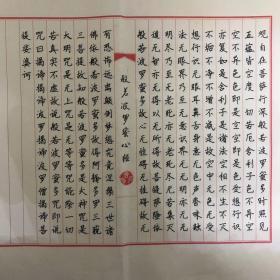 观自在菩萨行深般若波罗蜜多时照见
五蕴皆空度一切苦厄舍利子色不异空
空不异色色即是空空即是色受想行识
亦复如是舍利子是诸法空相不生不灭
不垢不净不增不减是故空中无色无受
想行识无眼耳鼻舌身意无色声香味触
法无眼界乃至无意识界无无明亦无无
明尽乃至无老死亦无老死尽无苦集灭
道无智亦无得以无所得故菩提萨埵依
般若波罗蜜多故心无挂碍无挂碍故无
般若波罗蜜心经
有恐怖远离颠倒梦想究竟涅槃三世诸
佛依般若波罗蜜多故得阿耨多罗三藐
三菩提故知般若波罗蜜多是大神咒是
大明咒是无上咒是无等等咒能除一切
苦真实不虚故说般若波罗蜜多咒即说
咒曰揭谛揭谛波罗揭谛波罗僧揭谛菩
提娑婆诃